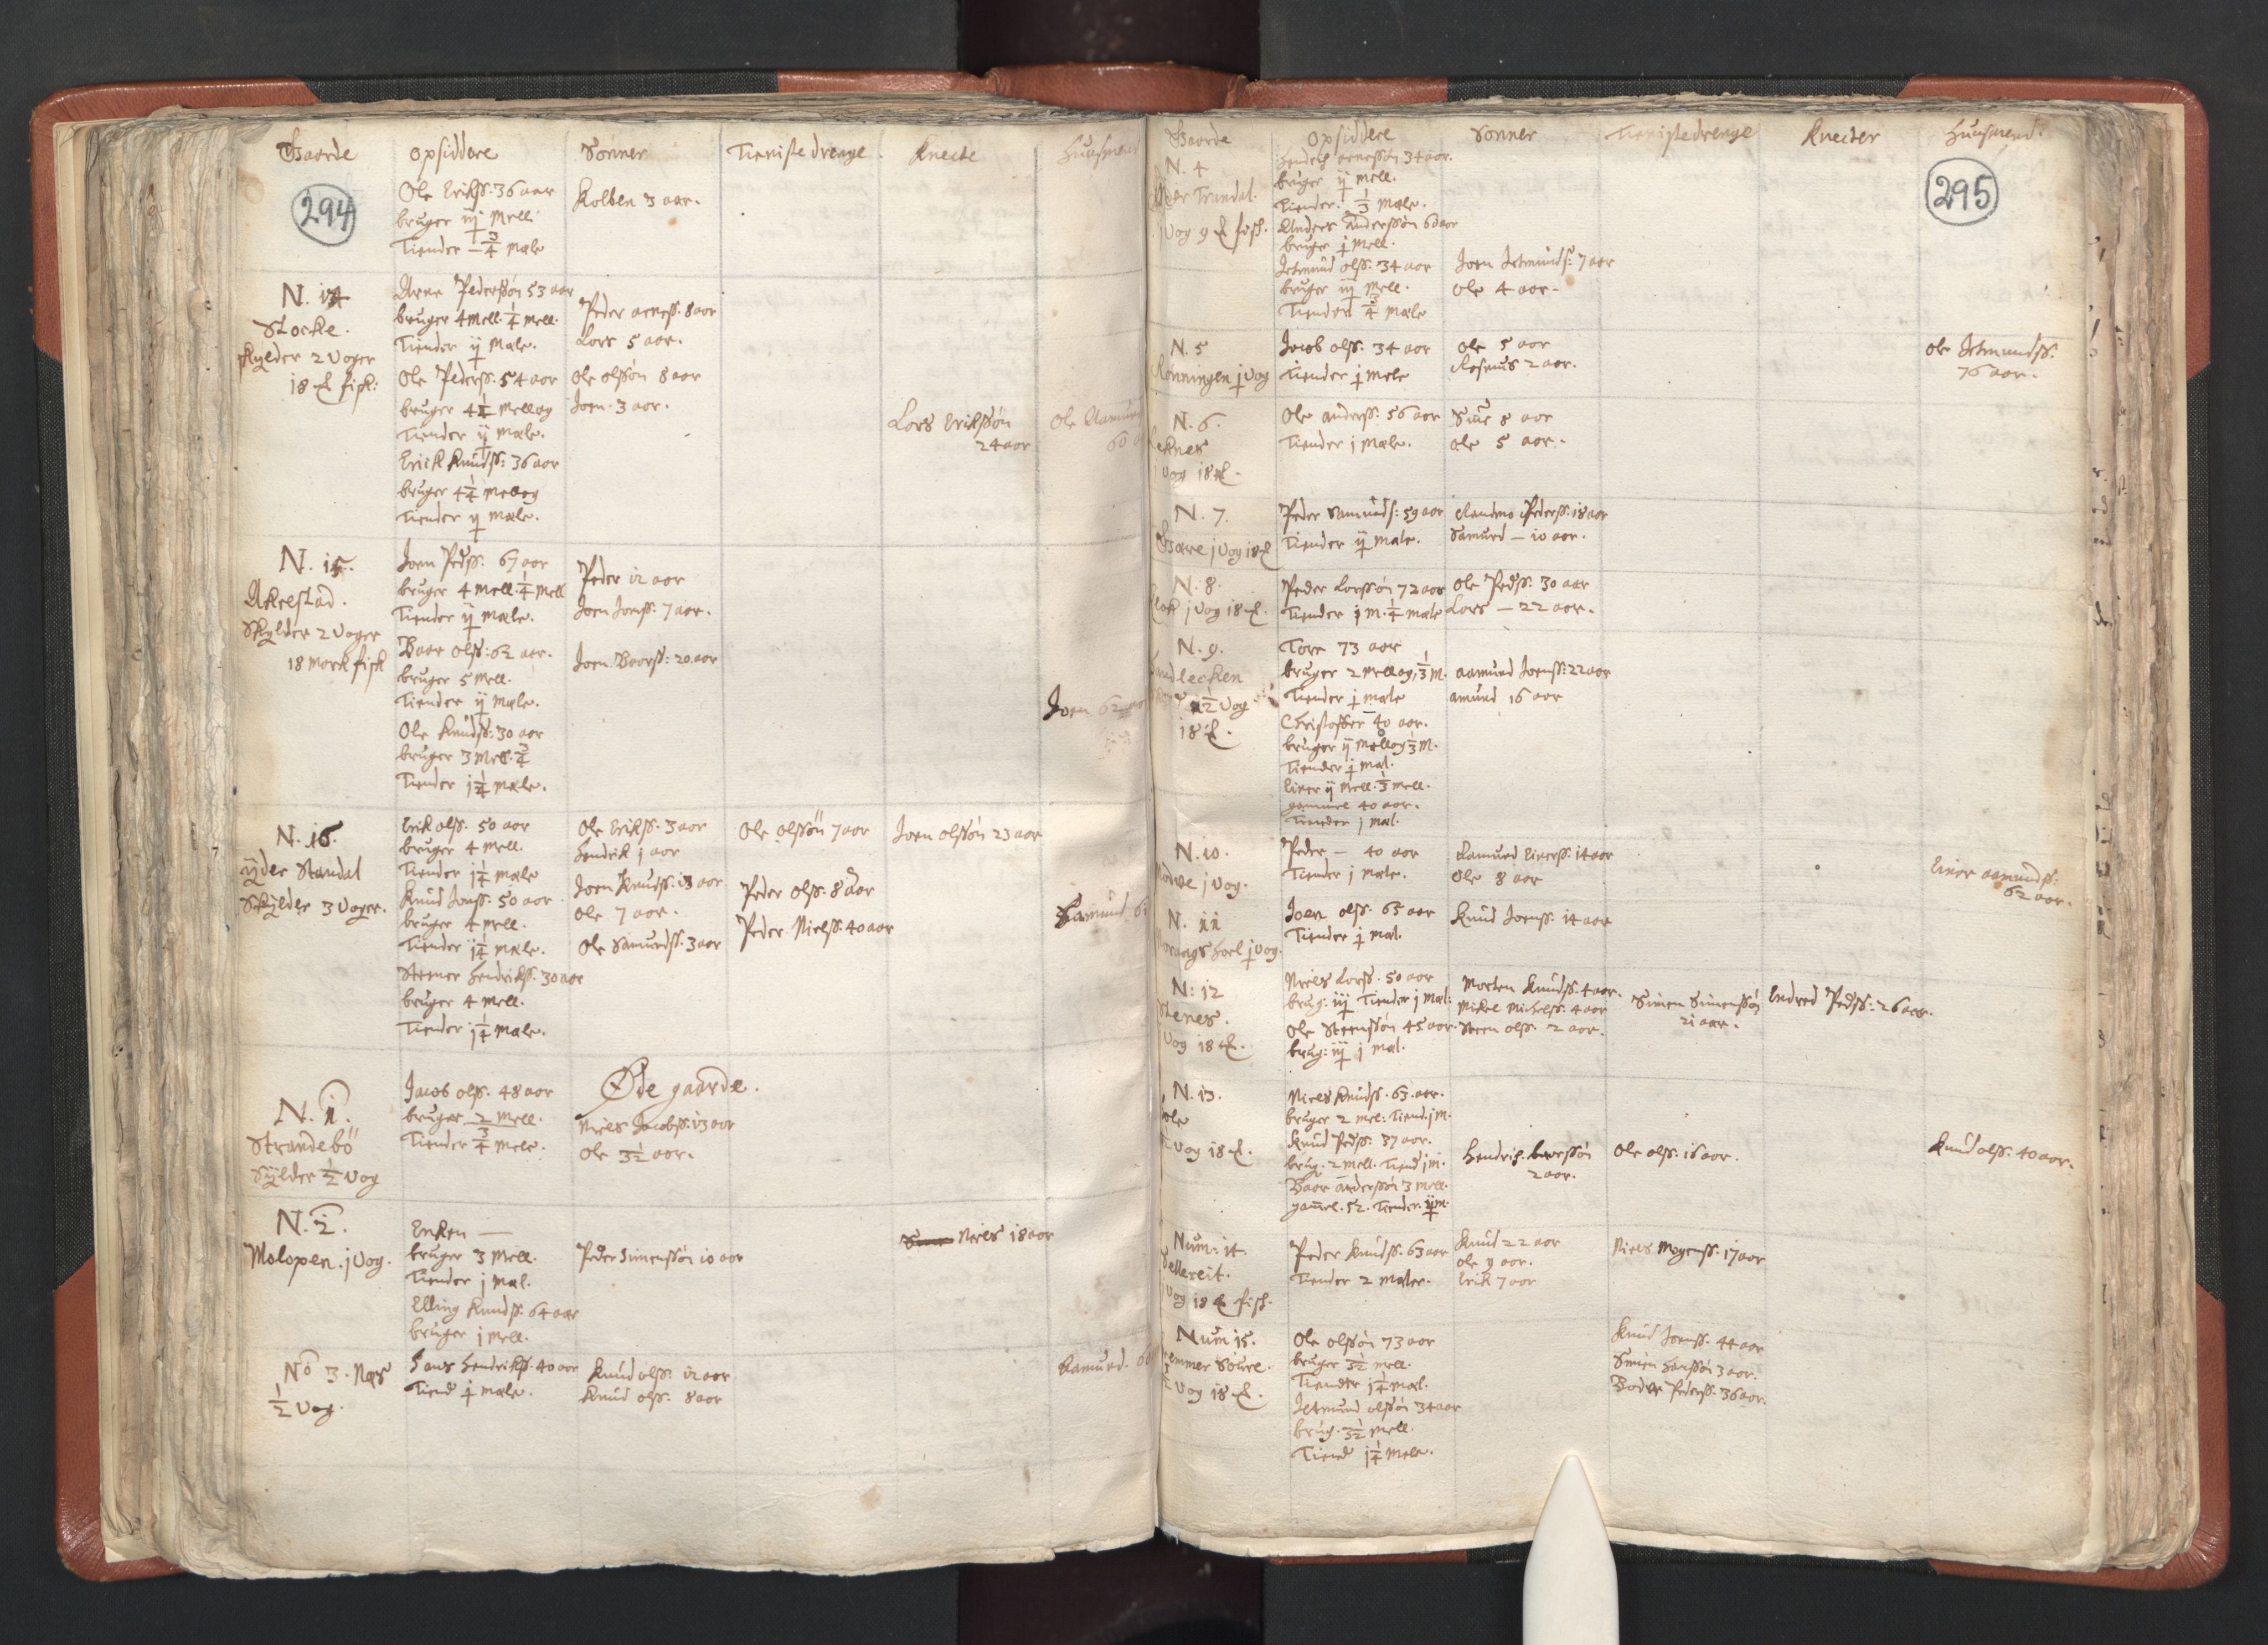 Gaarde opsiddere Sönner Tieniste drenge. Knecte Huusmend
294
Ole Erikss: 36 aar
bruger iij Mell.
Tiender – 3/4 Mæle
Kolben 3 aar.
N. 14
Stocke.
skylder 2 Voger
18 fisk:
Arne Pederssön 53 aar
bruger 4 Mell. 1/4 Mell.
Tiender ij Mæle.
Ole Pederss. 54 aar
bruger 4 1/4 Mellog
Tiender ij Mæle.
Erick Knudss: 36 aar
bruger 4 1/4 Mellog
Tiender ij Mæle.
Peder arness. 8 aar
Lars 5 aar.
Ole olssön 8 aar
Joen. 3 aar.
Lars Erikssön
24 aar
Ole
60
N. 15.
Akrestad.
Skylder 2 Voger
18 Mark fisk
Joen Pedss. 67 aar
bruger 4 Mell. 1/4 Mell
Tiender ij Mæle.
Baar olss: 62 aar.
bruger 5 Mell.
Tiender ij Mæle.
Ole Knudss: 30 aar
bruger 3 Mell. 3/4
Tiender j 1/4 Mæle.
Peder 12 aar
Joen Jonss: 7 aar.
Joen Baarss: 20 aar
Joen 62
N. 16.
ÿder Standal
Skÿlder 3 Voger.
Erik olss. 50 aar
bruger 4 Mell.
Tiender j 1/4 Mæle
Knud Jonss: 50 aar
bruger 4 Mell.
Tiender j 1/4 Mæle.
Steiner Hendrikss. 30 aar
bruger 4 Mell.
Tiender j 1/4 Mæle.
Ole Erikss. 3 aar
Hendrik j aar
Joen Knudss. 13 aar
Ole 7 aar.
Ole Samundss. 3 aar
Ole olssön 7 aar
Peder olss. 8 aar
Peder Nielss. 40 aar
Joen olssön 23 aar
Øde gaarde.
N. 1.
Strandebö
Sÿlder 1/2 Vog
Jacob olss. 48 aar
bruger 2 Mell.
Tiender 3/4 Mele.
Niels Jacobss. 13 aar
Ole 3 1/2 aar.
N. 2.
Molopen. j Vog.
Enken —
bruger 3 Mell.
Tiender j Mæl.
Elling Knudss. 64 aar
bruger j Mell.
Peder Simenssön 10 aar
Niels 18 aar
No 3. Næs
1/2 Vog.
Hans Hendrikss. 40 aar
Tiend j Mæle.
Knud olss: 12 aar
Knud olss. 8 aar
Aamund.
Gaarde Opsiddere Sönner Tienistedrenge Knecter Huusmend.
295
N. 4
Trandal.
Vog 9 fisk.
Hendrik arnessön 34 aar.
bruger ij Mell.
Tiender. 1/3 Mæle.
Anders anderssön 60 aar
bruger j Mell.
Jetmund olss. 34 aar
bruger iij Mell.
Tiender 3/4 Mæle
Joen Jetmundss: 7 aar
Ole 4 aar.
N. 5
Rönningen j Vog
Jacob olss. 34 aar
Tiender j Mele
Ole 5 aar
Rasmus 2 aar.
Ole Jetmundss.
76 aar.
N. 6.
Leknes
Vog 18
Ole anderss: 56 aar
Tiender j Mæle.
Siur 8 aar
Ole 5 aar.
N. 7.
j Vog 18
Peder Samunds: 59 aar
Tiender ij Mæle.
Pederss. 18 aar
Samund — 10 aar.
N. 8.
j Vog 18
Peder Larssön 72 aar
Tiender j M. 1/4 Mæle
Ole Pedss. 30 aar
Lars — 22 aar.
N. 9.
1/2 Vog
18
Tore 73 aar
bruger 2 Mellog, 1/3 M.
Tiender j Mæle
Christoffer 40 aar.
bruger ij Mellog 1/3 M.
Tiender j Mæl.
Einer ij Mell. 1/3 Mell.
gammel 40 aar.
Tiender j Mæl.
aamund Joenss: 22 aar
amund 16 aar
N. 10.
j Vog.
Peder — 40 aar
Tiender j Mæle.
Aamund Einerss. 14 aar
Ole 8 aar
Einer aamundss:
62 aar.
N. 11
j Vog.
Joen olss. 65 aar
Tiender j Mæl.
Knud Joenss. 14 aar
N: 12
Stenes.
Vog 18
Niels Larss. 50 aar
brug: iij Tiender j Mæl:
Ole Steenssön 45 aar.
brug: iij j Mæl.
Morten Knudss. 4 aar.
Mikel Michelss. 4 aar
Steen olss. 2 aar.
Simen Simenssön
21 aar.
Endred Pedss: 26 aar.
N. 13.
Vog 18
Niels Knudss. 63. aar.
bruger 2 Mel: Tiend. j M.
Knud Pedss: 37 aar.
brug. 2 Mell. Tiend j M.
Baar anderssön 3 Mell.
gammel. 52. Tiender ij M.
Hendrik baarssön
2 aar.
Ole olss. 16 aar.
Knud olss. 40 aar.
Num: 14
Vog 18 fisk.
Peder Knudss. 63 aar
Tiender 2 Mæler.
Knud 22 aar
Ole 9 aar.
Erik 7 aar
Niels Mogenss. 17 aar
Num 15.
Vog 18
Ole olssön 73 aar
bruger 3 1/2 Mell.
Tiender j 1/4 Mæl.
Jetmund olssön 34 aar
brug. 3 1/2 Mell.
Tiend j 1/4 Mele.
Knud Joenss. 44 aar
Simen Hanssön 3 aar.
Pederss. 36 aar.